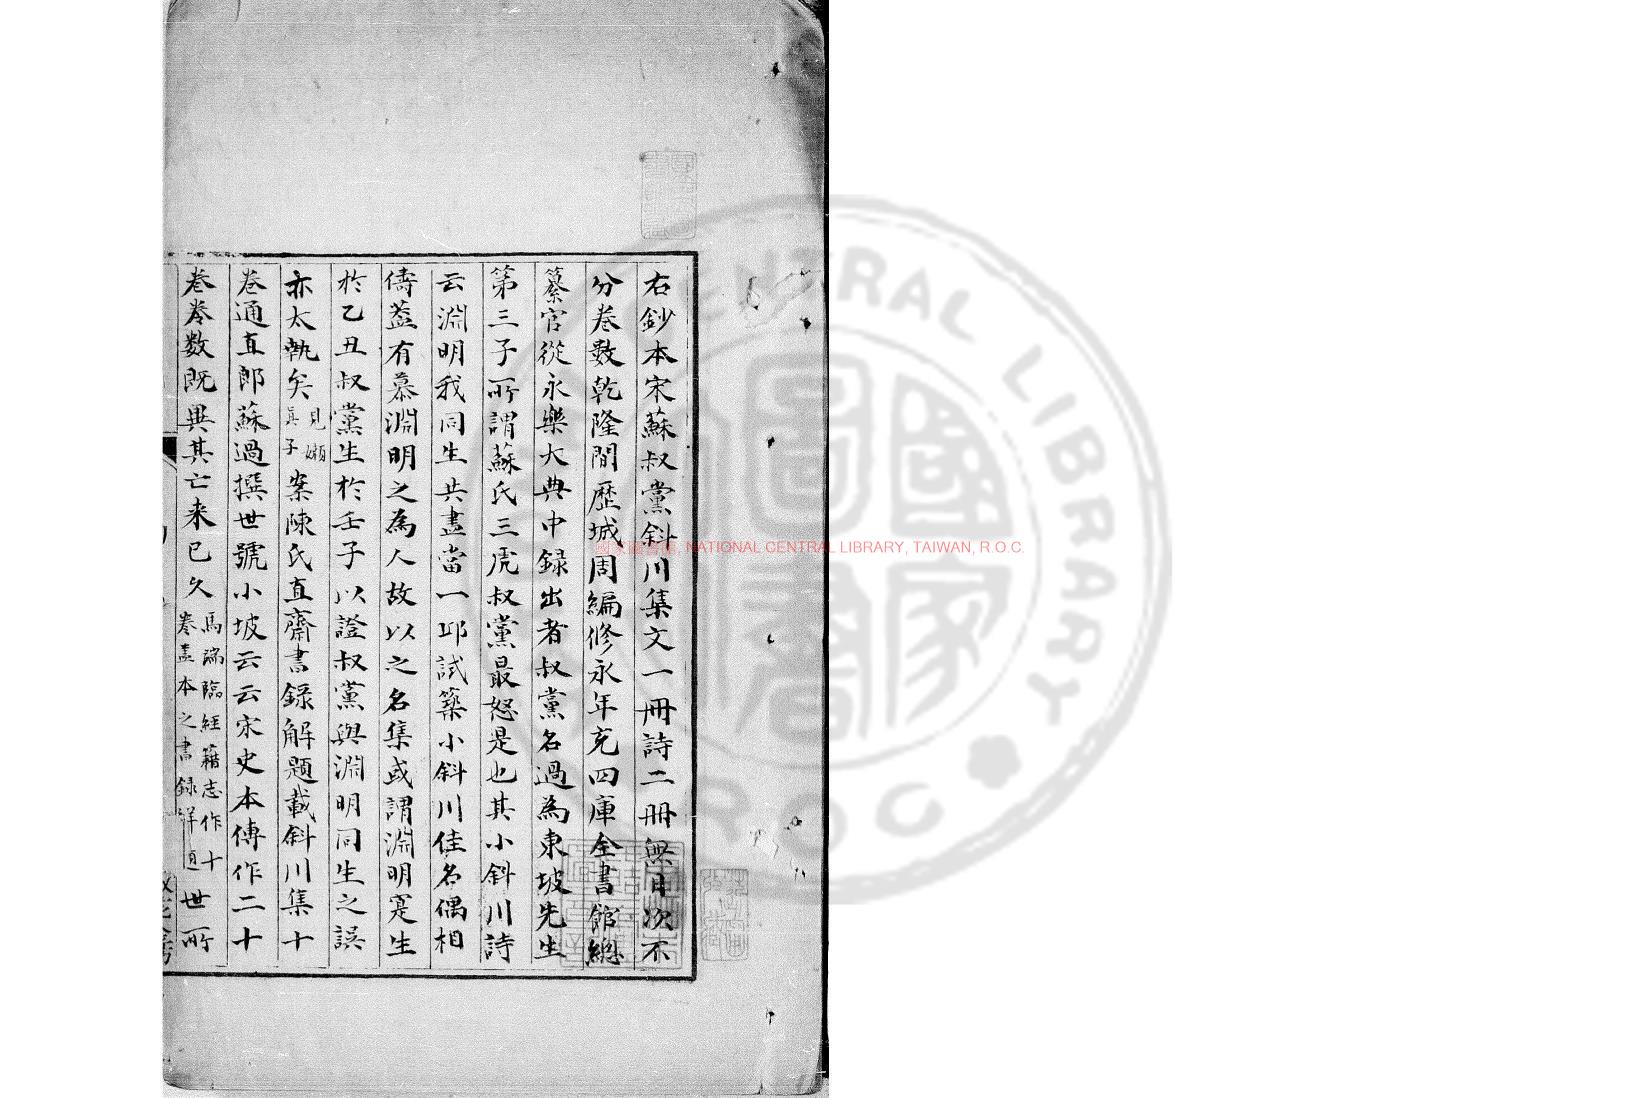 右鈔本宋蘇叔黨斜川集文一冊詩二冊無目次不
分卷數乾隆間歷城周編修永年充四庫全書館總
纂官從永樂大典中録出者叔黨名過為東坡先生
第三子所謂蘇氏三虎叔黨最怒是也其小斜川詩
云淵明我同生共盡當一邱試築小斜川佳名偶相
儔蓋有慕淵明之為人故以之名集或謂淵明寔生
於乙丑叔黨生於壬子以證叔黨與淵明同生之誤
亦太執矣見嬾真子案陳氏直齋書録解題載斜川集十
卷通直郎蘇過撰世號小坡云云宋史本傳作二十
卷卷数既異其亡来已久馬端臨經籍志作十卷盖本之書録解題世所
國家圖書館, NATIONAL CENTRAL LIBRARY, TAIWAN, R.O.C.
CENTRAL LIBRARY
R.O.C
國家圖書